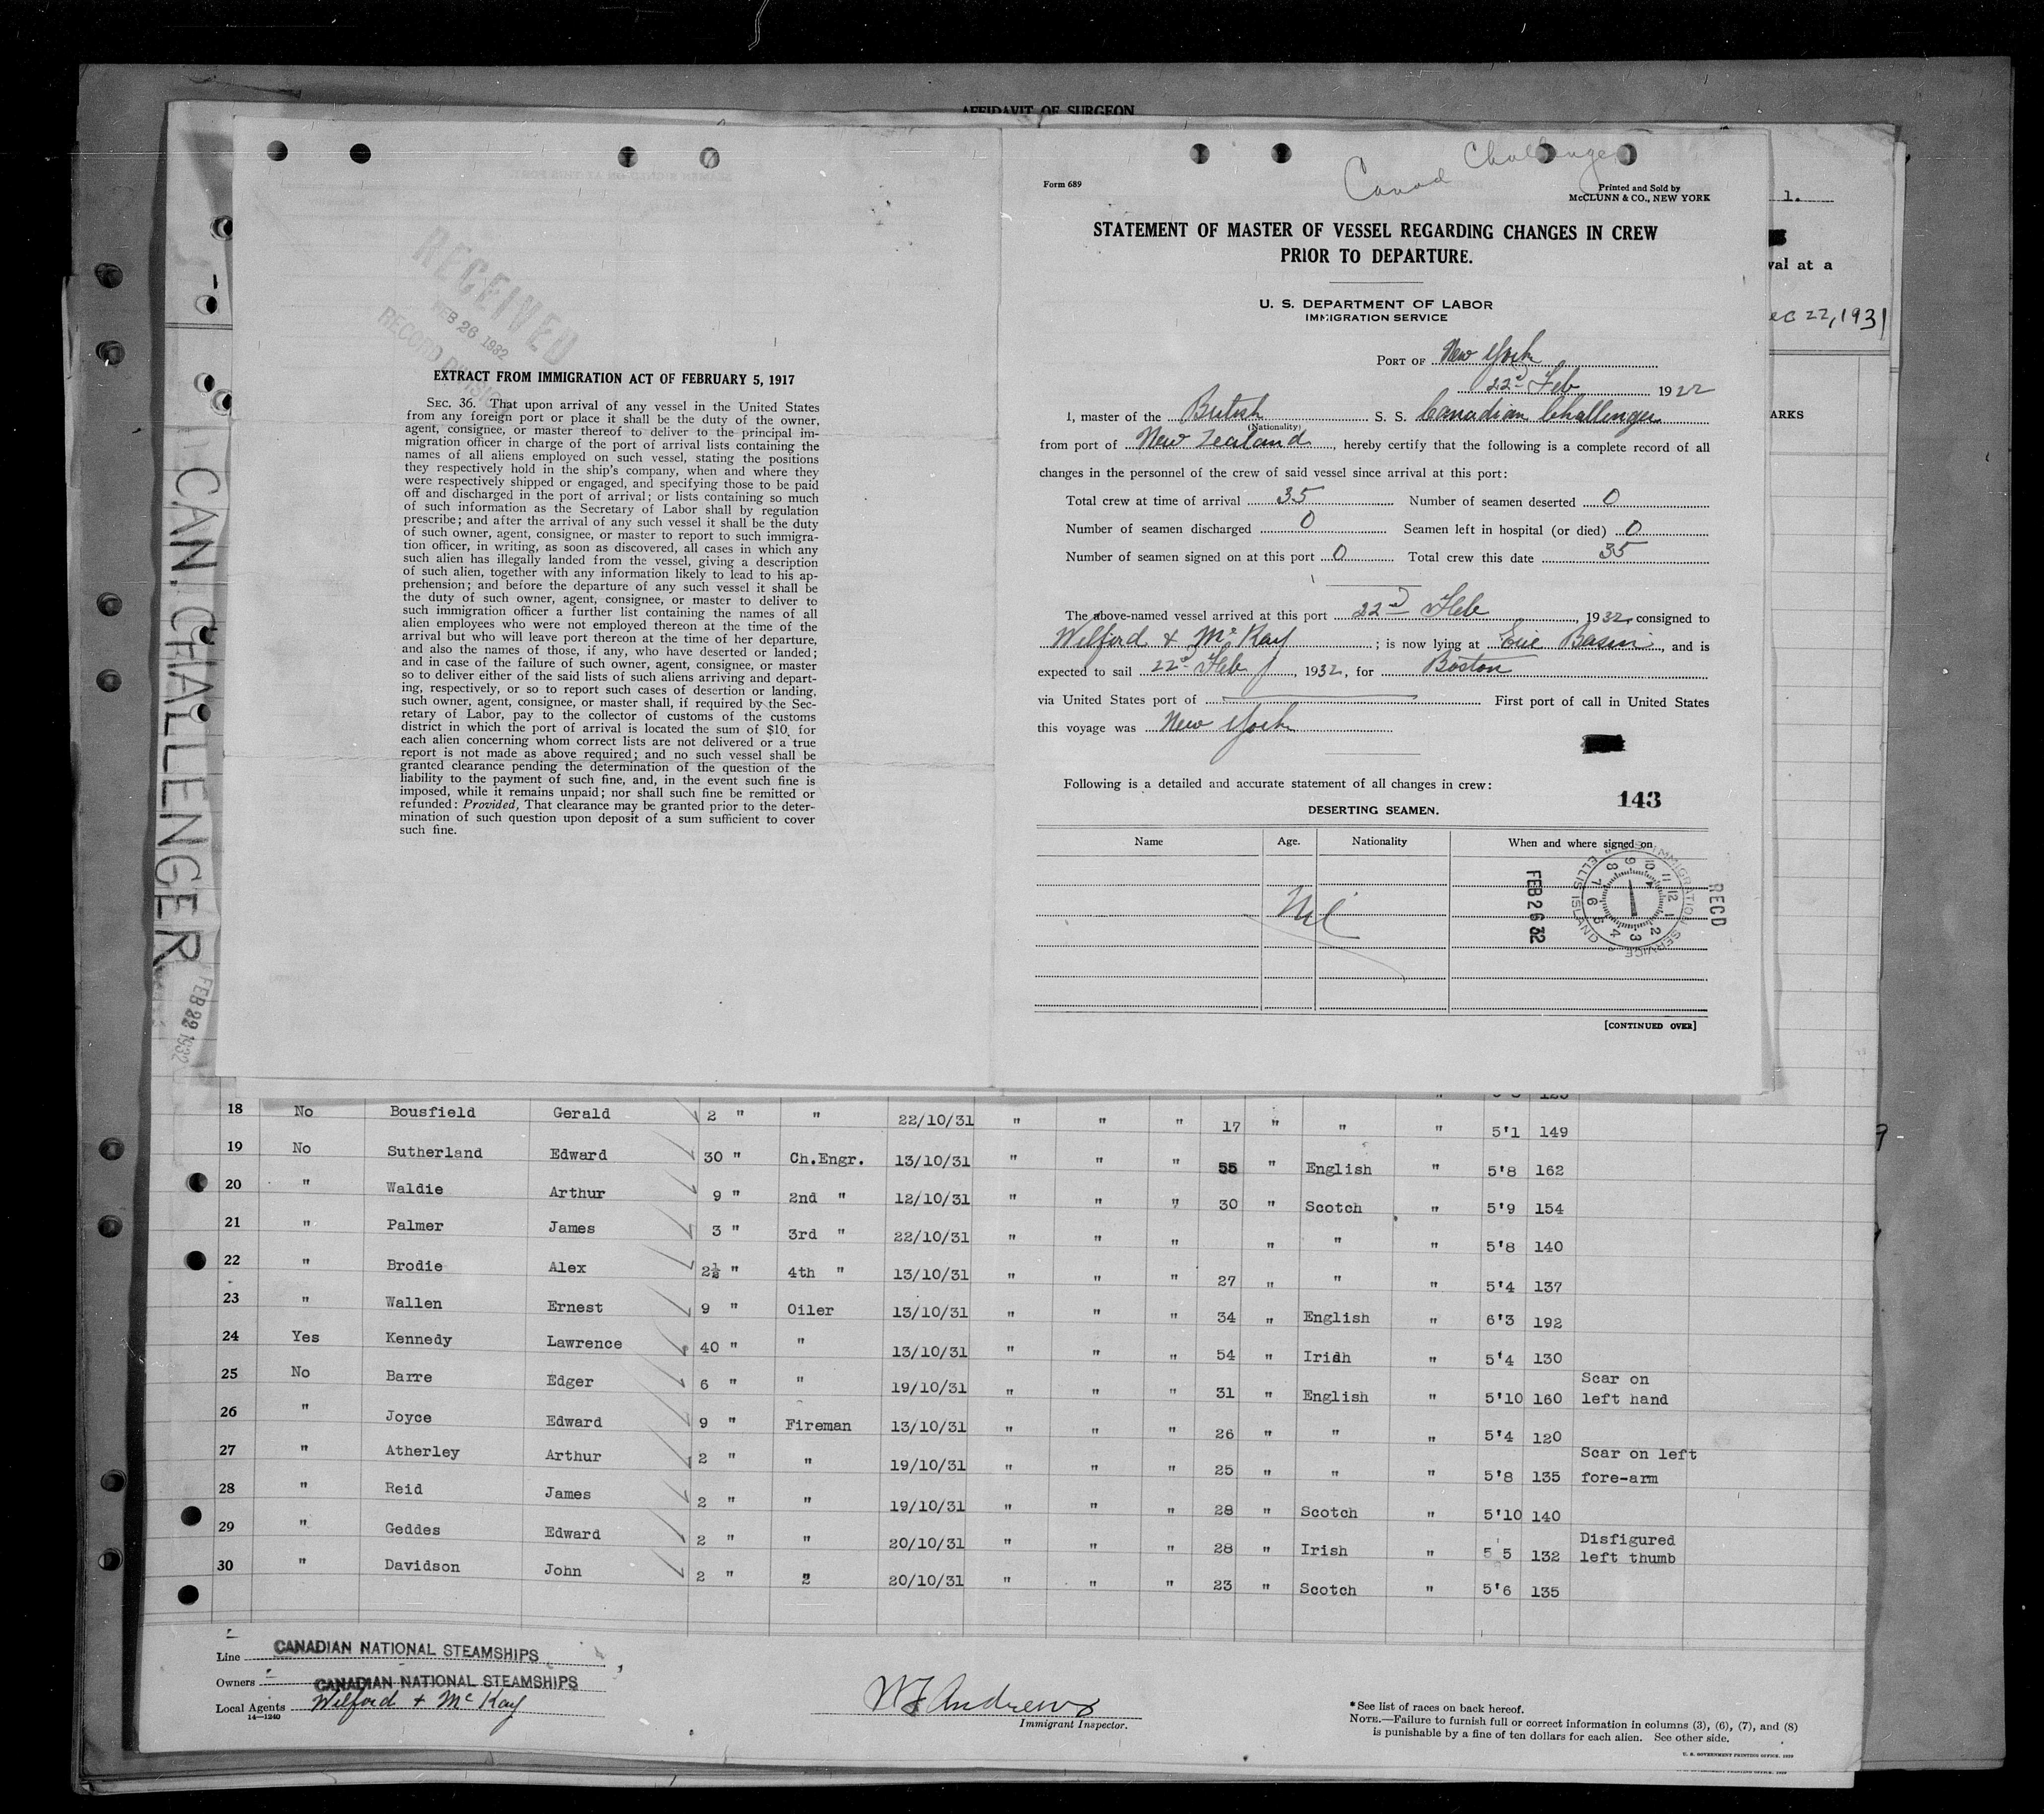 AFFIDAVIT OF SURGEON
Canad Challenger
Form 689
Printed and Sold by
McCLUNN & CO., NEW YORK
STATEMENT OF MASTER OF VESSEL REGARDING CHANGES IN CREW
PRIOR TO DEPARTURE.
U. S. DEPARTMENT OF LABOR
IMMIGRATION SERVICE
PORT OF New York
22nd Feb 1922
I, master of the British S. S. Canadian Challenger
(Nationality)
from port of New Zealand, hereby certify that the following is a complete record of all
changes in the personnel of the crew of said vessel since arrival at this port:
Total crew at time of arrival 35 Number of seamen deserted 0
Number of seamen discharged 0 Seamen left in hospital (or died) 0
Number of seamen signed on at this port 0 Total crew this date 35
The above-named vessel arrived at this port 22nd Feb, 1932, consigned to
Wilford & McKay; is now lying at Erie Basin, and is
expected to sail 22nd Feb, 1932, for Boston
via United States port of First port of call in United States
this voyage was New York
Following is a detailed and accurate statement of all changes in crew:
143
DESERTING SEAMEN.
Name Age. Nationality When and where signed on
Nil
RECD
FEB 26 32
IMMIGRATION SERVICE
ELLIS ISLAND
[CONTINUED OVER]
RECEIVED
FEB 26 1932
RECORD DIVISION
EXTRACT FROM IMMIGRATION ACT OF FEBRUARY 5, 1917
SEC. 36. That upon arrival of any vessel in the United States
from any foreign port or place it shall be the duty of the owner,
agent, consignee, or master thereof to deliver to the principal im-
migration officer in charge of the port of arrival lists containing the
names of all aliens employed on such vessel, stating the positions
they respectively hold in the ship's company, when and where they
were respectively shipped or engaged, and specifying those to be paid
off and discharged in the port of arrival; or lists containing so much
of such information as the Secretary of Labor shall by regulation
prescribe; and after the arrival of any such vessel it shall be the duty
of such owner, agent, consignee, or master to report to such immigra-
tion officer, in writing, as soon as discovered, all cases in which any
such alien has illegally landed from the vessel, giving a description
of such alien, together with any information likely to lead to his ap-
prehension; and before the departure of any such vessel it shall be
the duty of such owner, agent, consignee, or master to deliver to
such immigration officer a further list containing the names of all
alien employees who were not employed thereon at the time of the
arrival but who will leave port thereon at the time of her departure,
and also the names of those, if any, who have deserted or landed;
and in case of the failure of such owner, agent, consignee, or master
so to deliver either of the said lists of such aliens arriving and depart-
ing, respectively, or so to report such cases of desertion or landing,
such owner, agent, consignee, or master shall, if required by the Sec-
retary of Labor, pay to the collector of customs of the customs
district in which the port of arrival is located the sum of $10 for
each alien concerning whom correct lists are not delivered or a true
report is not made as above required; and no such vessel shall be
granted clearance pending the determination of the question of the
liability to the payment of such fine, and, in the event such fine is
imposed, while it remains unpaid; nor shall such fine be remitted or
refunded: Provided, That clearance may be granted prior to the deter-
mination of such question upon deposit of a sum sufficient to cover
such fine.
CAN. CHALLENGER
FEB 22 1932
1.
val at a
ec 22, 1931
ARKS
18 No Bousfield Gerald 2 " " 22/10/31 " " " 17 " " " 5'1 149
19 No Sutherland Edward 30 " Ch.Engr. 13/10/31 " " " 55 " English " 5'8 162
20 " Waldie Arthur 9 " 2nd " 12/10/31 " " " 30 " Scotch " 5'9 154
21 " Palmer James 3 " 3rd " 22/10/31 " " " " " " 5'8 140
22 " Brodie Alex 2½ " 4th " 13/10/31 " " " 27 " " " 5'4 137
23 " Wallen Ernest 9 " Oiler 13/10/31 " " " 34 " English " 6'3 192
24 Yes Kennedy Lawrence 40 " " 13/10/31 " " " 54 " Irish " 5'4 130
25 No Barre Edger 6 " " 19/10/31 " " " 31 " English " 5'10 160 Scar on left hand
26 " Joyce Edward 9 " Fireman 13/10/31 " " " 26 " " " 5'4 120
27 " Atherley Arthur 2 " " 19/10/31 " " " 25 " " " 5'8 135 Scar on left fore-arm
28 " Reid James 2 " " 19/10/31 " " " 28 " Scotch " 5'10 140
29 " Geddes Edward 2 " " 20/10/31 " " " 28 " Irish " 5'5 132 Disfigured left thumb
30 " Davidson John 2 " " 20/10/31 " " " 23 " Scotch " 5'6 135
Line CANADIAN NATIONAL STEAMSHIPS
Owners CANADIAN NATIONAL STEAMSHIPS
Local Agents Wilford & McKay
14—1240
W F Andrews
Immigrant Inspector.
* See list of races on back hereof.
NOTE.—Failure to furnish full or correct information in columns (3), (6), (7), and (8)
is punishable by a fine of ten dollars for each alien. See other side.
U. S. GOVERNMENT PRINTING OFFICE: 1929